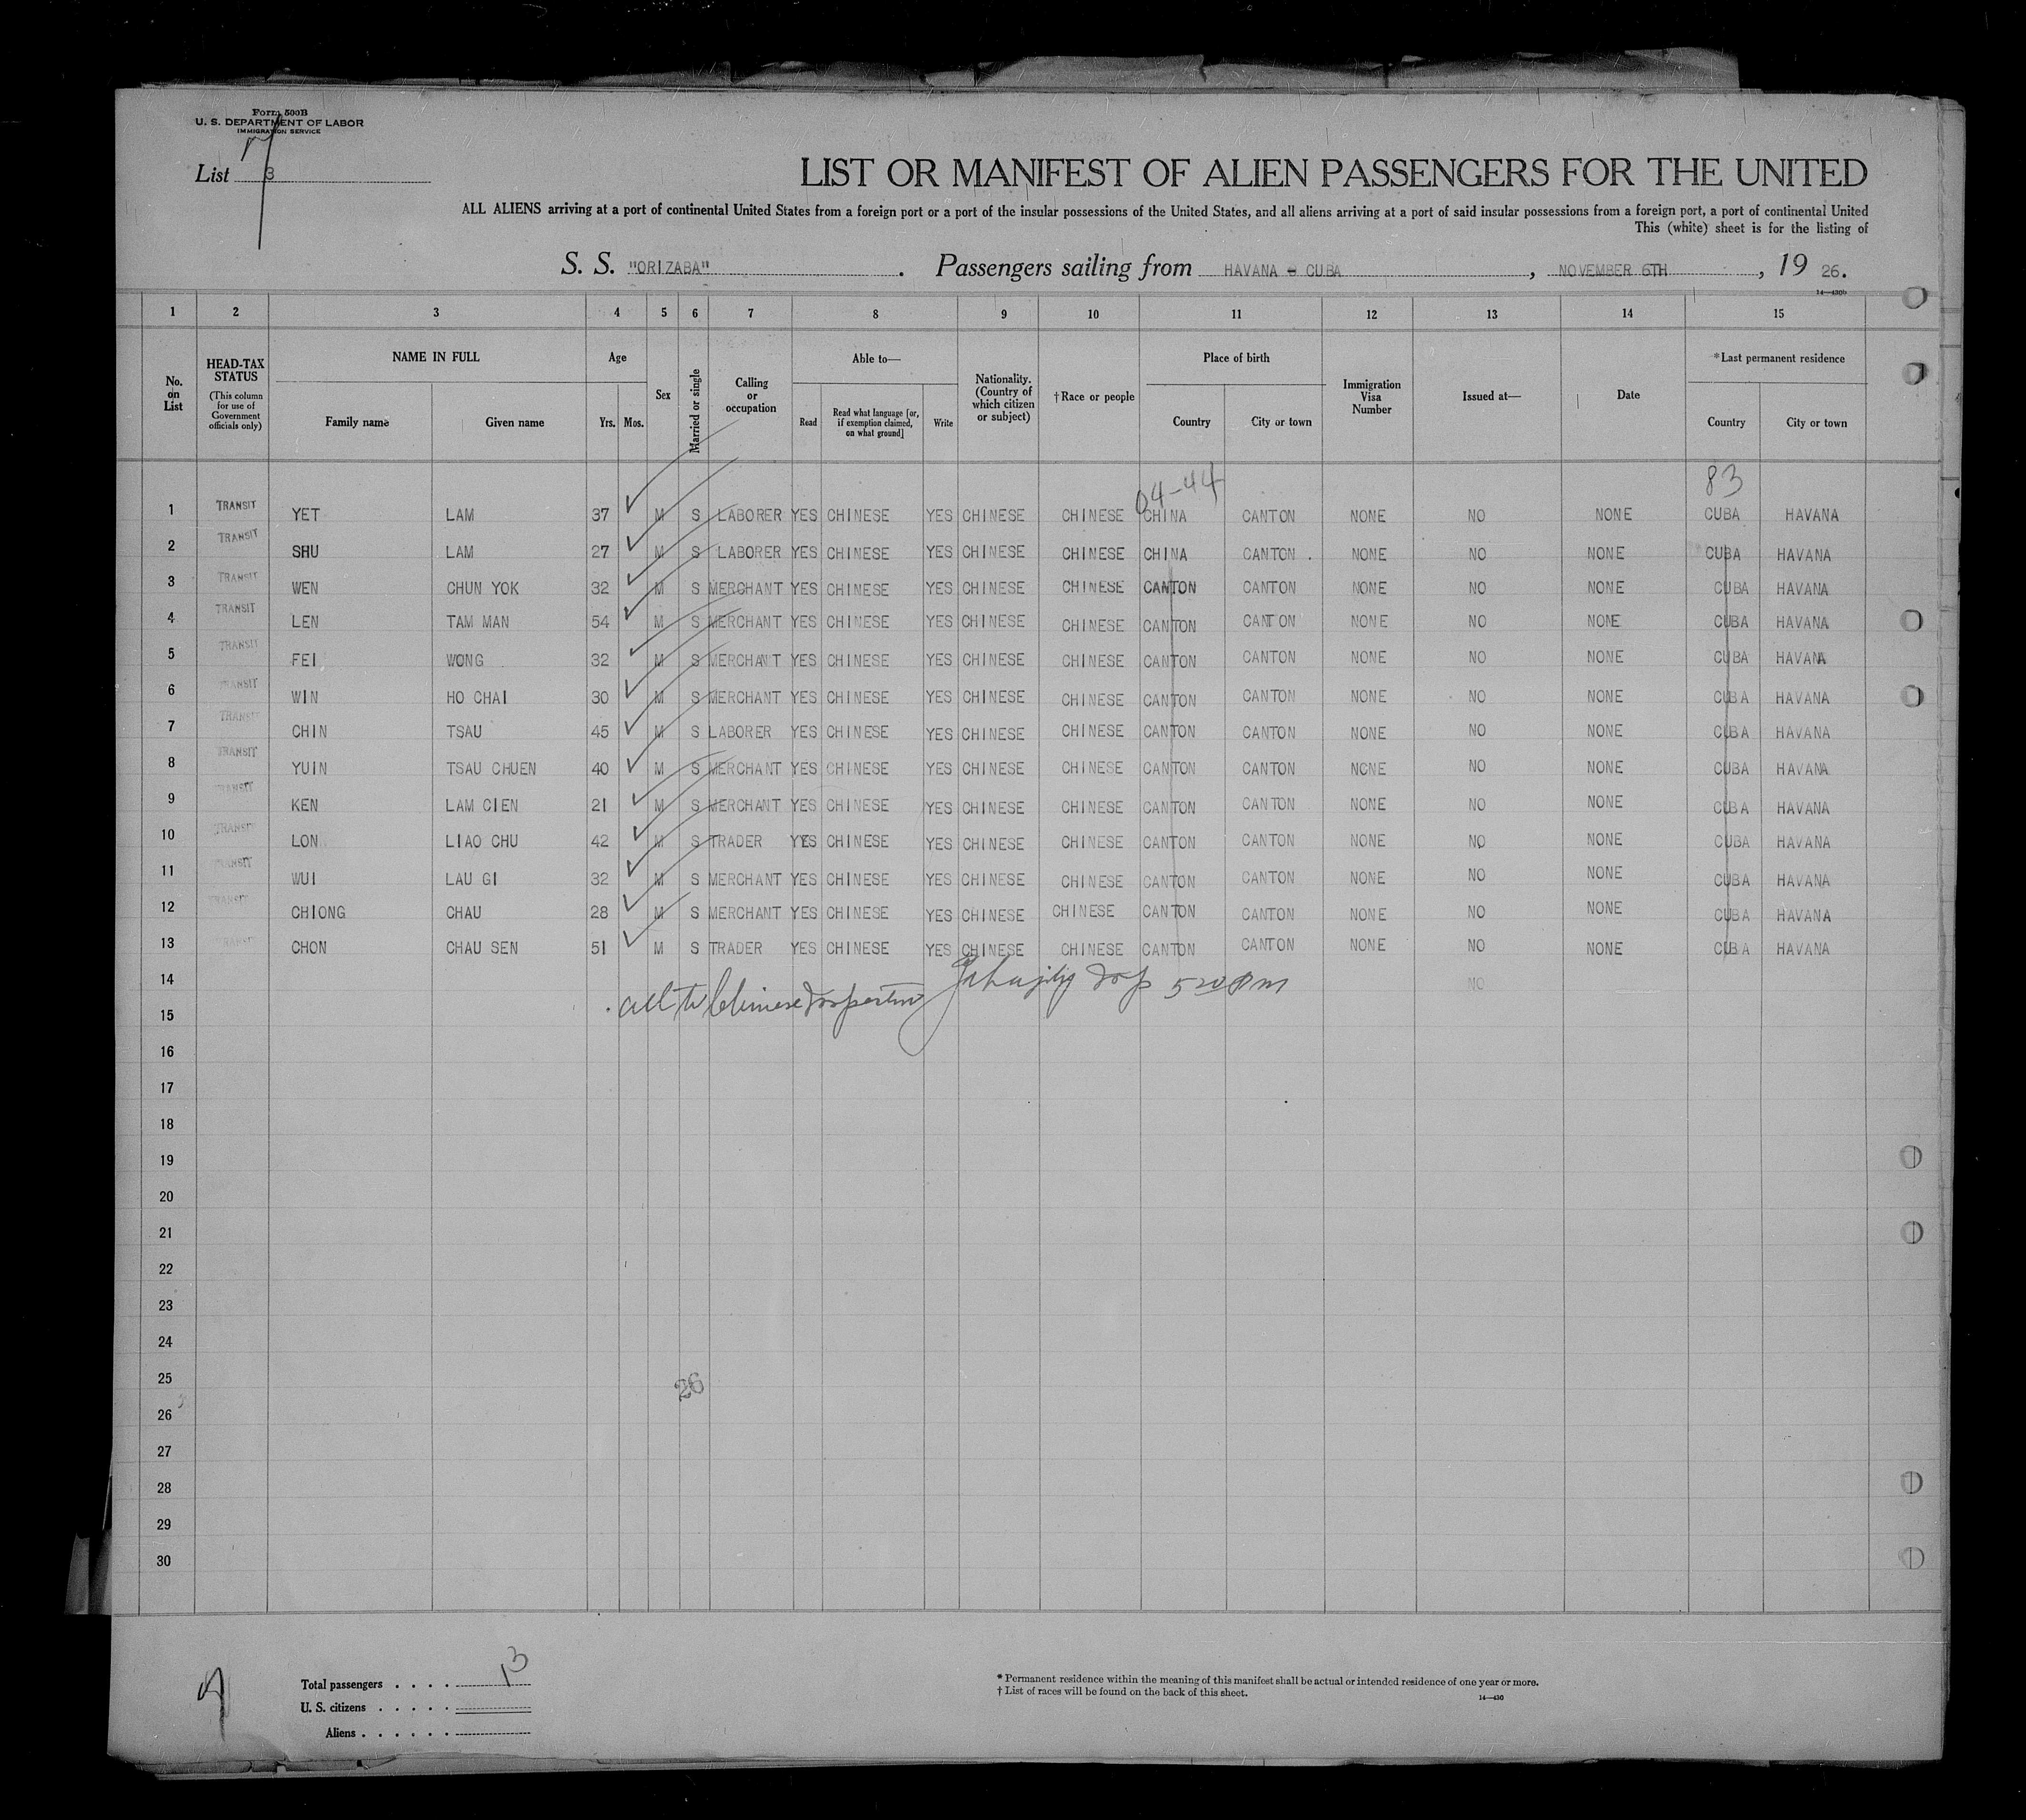 Form 500B
U. S. DEPARTMENT OF LABOR
IMMIGRATION SERVICE
List 3
LIST OR MANIFEST OF ALIEN PASSENGERS FOR THE UNITED
ALL ALIENS arriving at a port of continental United States from a foreign port or a port of the insular possessions of the United States, and all aliens arriving at a port of said insular possessions from a foreign port, a port of continental United
This (white) sheet is for the listing of
S. S. "ORIZABA". Passengers sailing from HAVANA - CUBA, NOVEMBER 6TH, 19 26.
14—430b
1 2 3 4 5 6 7 8 9 10 11 12 13 14 15
No. on List
HEAD-TAX STATUS (This column for use of Government officials only)
NAME IN FULL Family name Given name
Age Yrs. Mos.
Sex
Married or single
Calling or occupation
Able to— Read Read what language [or, if exemption claimed, on what ground] Write
Nationality. (Country of which citizen or subject)
†Race or people
Place of birth Country City or town
Immigration Visa Number
Issued at—
Date
*Last permanent residence Country City or town
04-44 83
1 TRANSIT YET LAM 37 M S LABORER YES CHINESE YES CHINESE CHINESE CHINA CANTON NONE NO NONE CUBA HAVANA
2 TRANSIT SHU LAM 27 M S LABORER YES CHINESE YES CHINESE CHINESE CHINA CANTON . NONE NO NONE CUBA HAVANA
3 TRANSIT WEN CHUN YOK 32 M S MERCHANT YES CHINESE YES CHINESE CHINESE CANTON CANTON NONE NO NONE CUBA HAVANA
4 TRANSIT LEN TAM MAN 54 M S MERCHANT YES CHINESE YES CHINESE CHINESE CANTON CANTON NONE NO NONE CUBA HAVANA
5 TRANSIT FEI WONG 32 M S MERCHANT YES CHINESE YES CHINESE CHINESE CANTON CANTON NONE NO NONE CUBA HAVANA
6 TRANSIT WIN HO CHAI 30 M S MERCHANT YES CHINESE YES CHINESE CHINESE CANTON CANTON NONE NO NONE CUBA HAVANA
7 TRANSIT CHIN TSAU 45 M S LABORER YES CHINESE YES CHINESE CHINESE CANTON CANTON NONE NO NONE CUBA HAVANA
8 TRANSIT YUIN TSAU CHUEN 40 M S MERCHANT YES CHINESE YES CHINESE CHINESE CANTON CANTON NONE NO NONE CUBA HAVANA
9 TRANSIT KEN LAM CIEN 21 M S MERCHANT YES CHINESE YES CHINESE CHINESE CANTON CANTON NONE NO NONE CUBA HAVANA
10 TRANSIT LON LIAO CHU 42 M S TRADER YES CHINESE YES CHINESE CHINESE CANTON CANTON NONE NO NONE CUBA HAVANA
11 TRANSIT WUI LAU GI 32 M S MERCHANT YES CHINESE YES CHINESE CHINESE CANTON CANTON NONE NO NONE CUBA HAVANA
12 TRANSIT CHIONG CHAU 28 M S MERCHANT YES CHINESE YES CHINESE CHINESE CANTON CANTON NONE NO NONE CUBA HAVANA
13 TRANSIT CHON CHAU SEN 51 M S TRADER YES CHINESE YES CHINESE CHINESE CANTON CANTON NONE NO NONE CUBA HAVANA
14 NO
all to Chinese Inspector Insp 5 20 Pm
15
16
17
18
19
20
21
22
23
24
25 26
26
27
28
29
30
Total passengers . . . . 13
U. S. citizens . . . . .
Aliens . . . . . .
* Permanent residence within the meaning of this manifest shall be actual or intended residence of one year or more.
† List of races will be found on the back of this sheet.
14—430